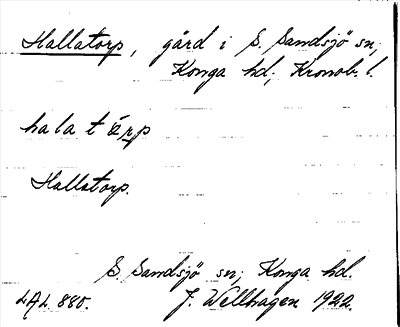 Hallatorp, gård i S. Sandsjö sn,
Konga hd, Kronob. l.
Hallatorp.
S. Sandsjö sn, Konga hd.
LAL 880. J. Wellhagen 1922.